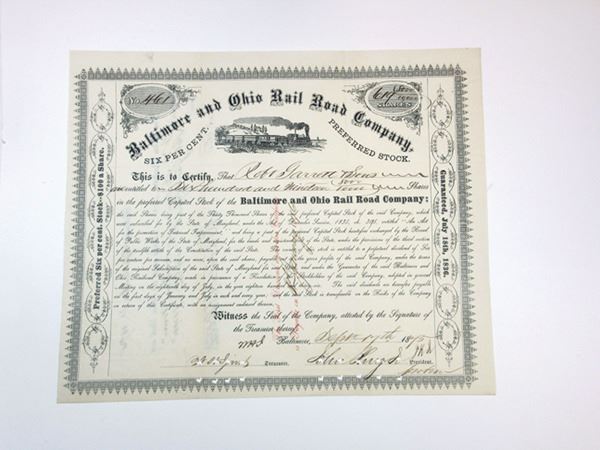 No. 461
619 5000/10000
SHARES
Baltimore and Ohio Rail Road Company,
SIX PER CENT. PREFERRED STOCK.
This is to Certify, That Robt Garrett & Sons
are entitled to Six hundred and Nineteen Shares
in the preferred Capital Stock of the Baltimore and Ohio Rail Road Company:
the said Shares being part of the Thirty Thousand Shares of the preferred Capital Stock of the said Company, which
were subscribed for by the State of Maryland under the Act of December Session, 1835, ch. 395, entitled "An Act
for the promotion of Internal Improvement," and being a part of the Capital Stock heretofore exchanged by the Board
of Public Works of the State of Maryland, for the bonds and registered debt of the State, under the provisions of the third section
of the twelfth article of the Constitution of the State. The said stock is entitled to a perpetual dividend of Six
per centum per annum, and no more, upon the said shares, payable out of the gross profits of the said Company, under the terms
of the original Subscription of the said State of Maryland and under the Guarantee of the said Baltimore and
Ohio Railroad Company, made in pursuance of a Resolution of the Stockholders of the said Company, adopted in general
Meeting on the eighteenth day of July, in the year eighteen hundred and thirty six. The said dividends are therefore payable
on the first days of January and July in each and every year, and the said Stock is transferable on the Books of the Company
on return of this Certificate, with an assignment endorsed thereon.
Witness the Seal of the Company, attested by the Signature of
the Treasurer thereof.
Baltimore, Sept 17th 18
Treasurer.
President.
Preferred Six per cent. Stock--$100 a Share.
Guaranteed, July 18th, 1836.